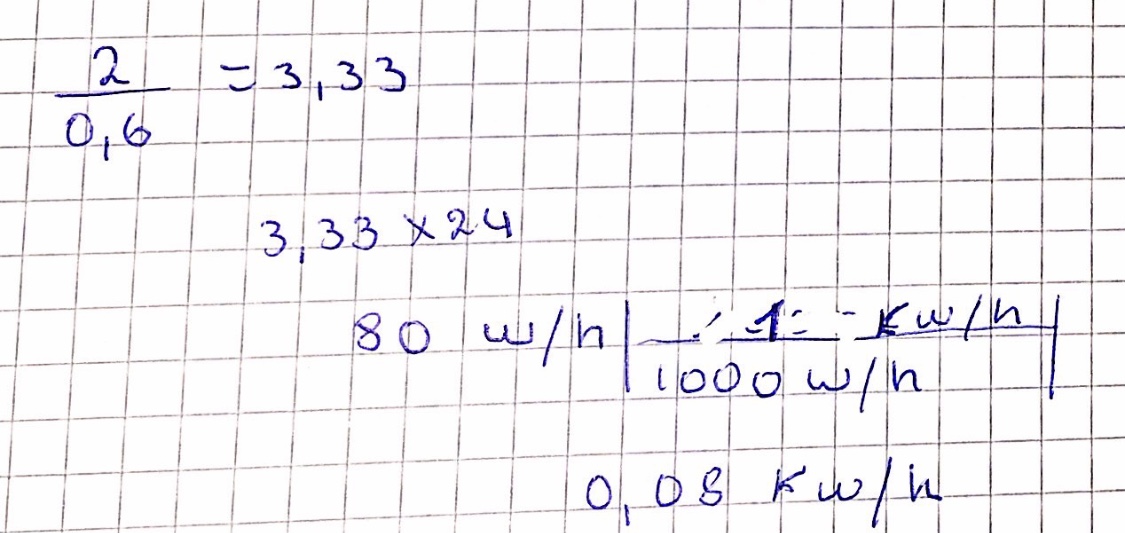 2
0,6
= 3,33
3,33 x 24
80 w/h | 1 Kw/h |
1000 w/h
0,08 Kw/h